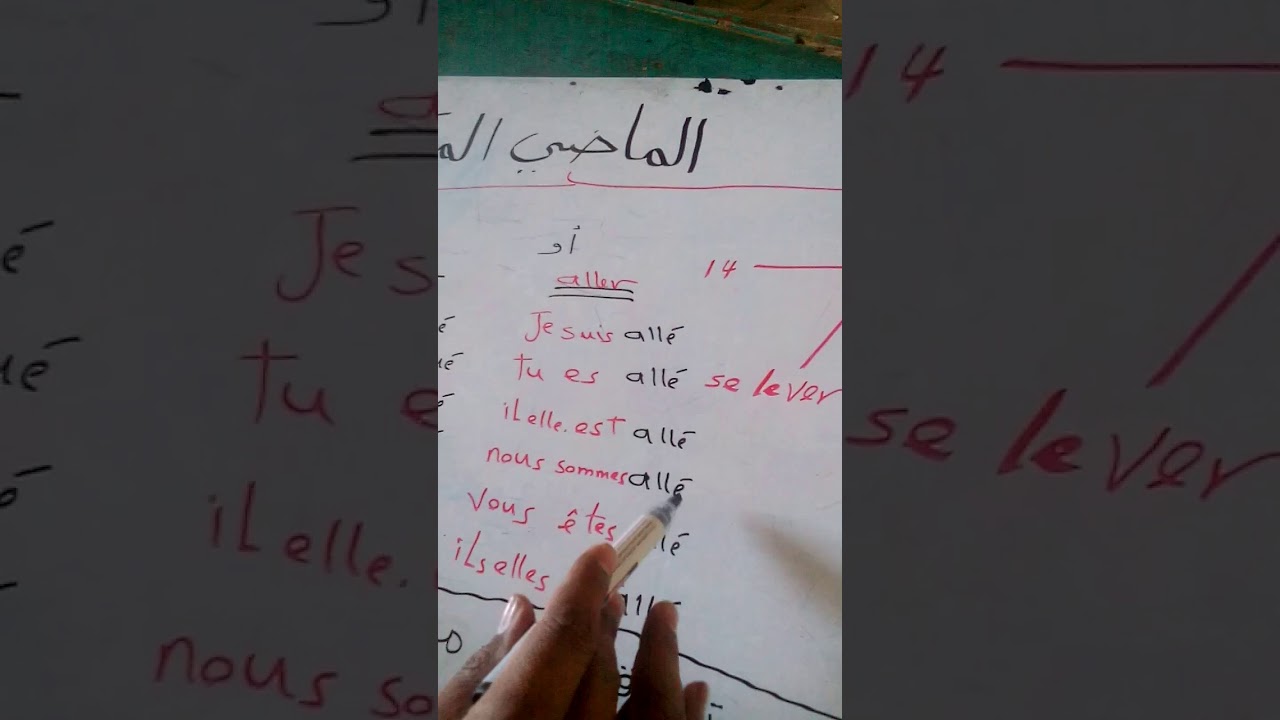 الماضي
أو
aller
14
Je suis allé
tu es allé
se lever
il elle. est allé
nous sommes allé
vous êtes
ils elles